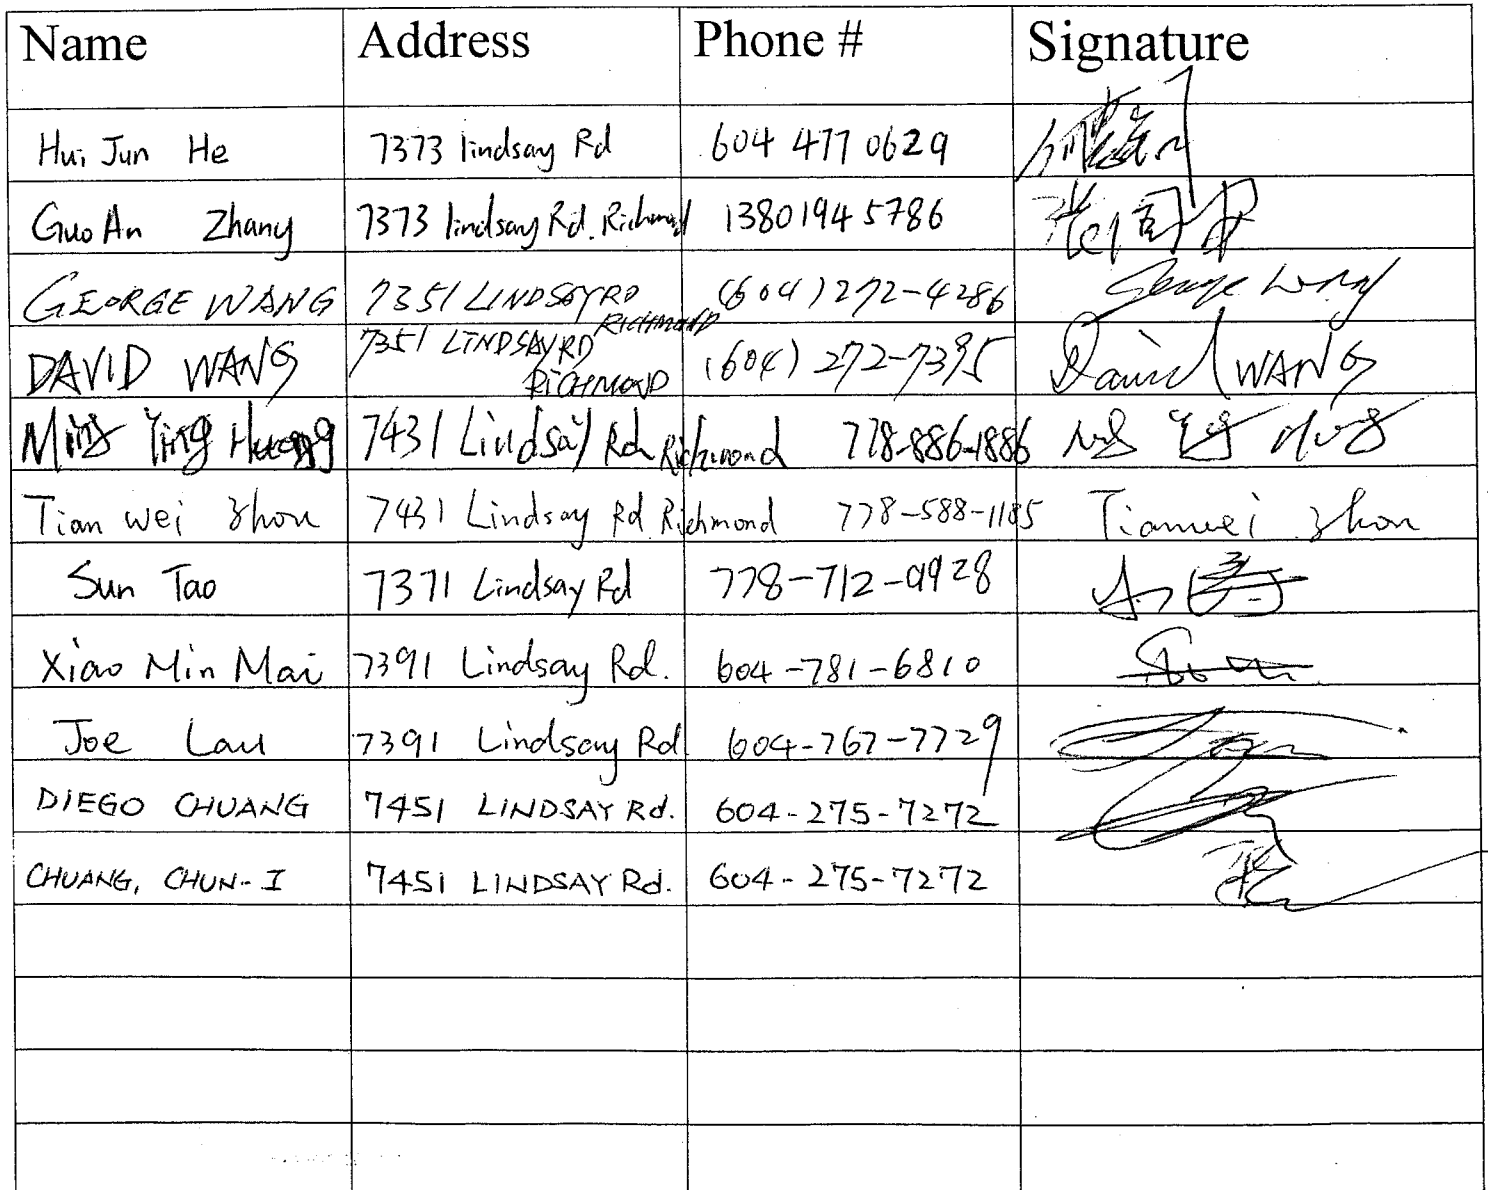 Name Address Phone # Signature
Hui Jun He 7373 lindsay Rd 604 477 0629
Guo An Zhang 7373 lindsay Rd. Richmond 13801945786
GEORGE WANG 7351 LINDSAY RD RICHMOND (604) 272-4286 George Wang
DAVID WANG 7351 LINDSAY RD RICHMOND (604) 272-7395 David WANG
Ming Ying Huang 7431 Lindsay Rd Richmond 778-886-1886
Tian wei Zhou 7431 Lindsay Rd Richmond 778-588-1185 Tianwei Zhou
Sun Tao 7371 Lindsay Rd 778-712-9928
Xiao Min Mai 7391 Lindsay Rd. 604-781-6810
Joe Lau 7391 Lindsay Rd 604-767-7729
DIEGO CHUANG 7451 LINDSAY Rd. 604-275-7272
CHUANG, CHUN-I 7451 LINDSAY Rd. 604-275-7272